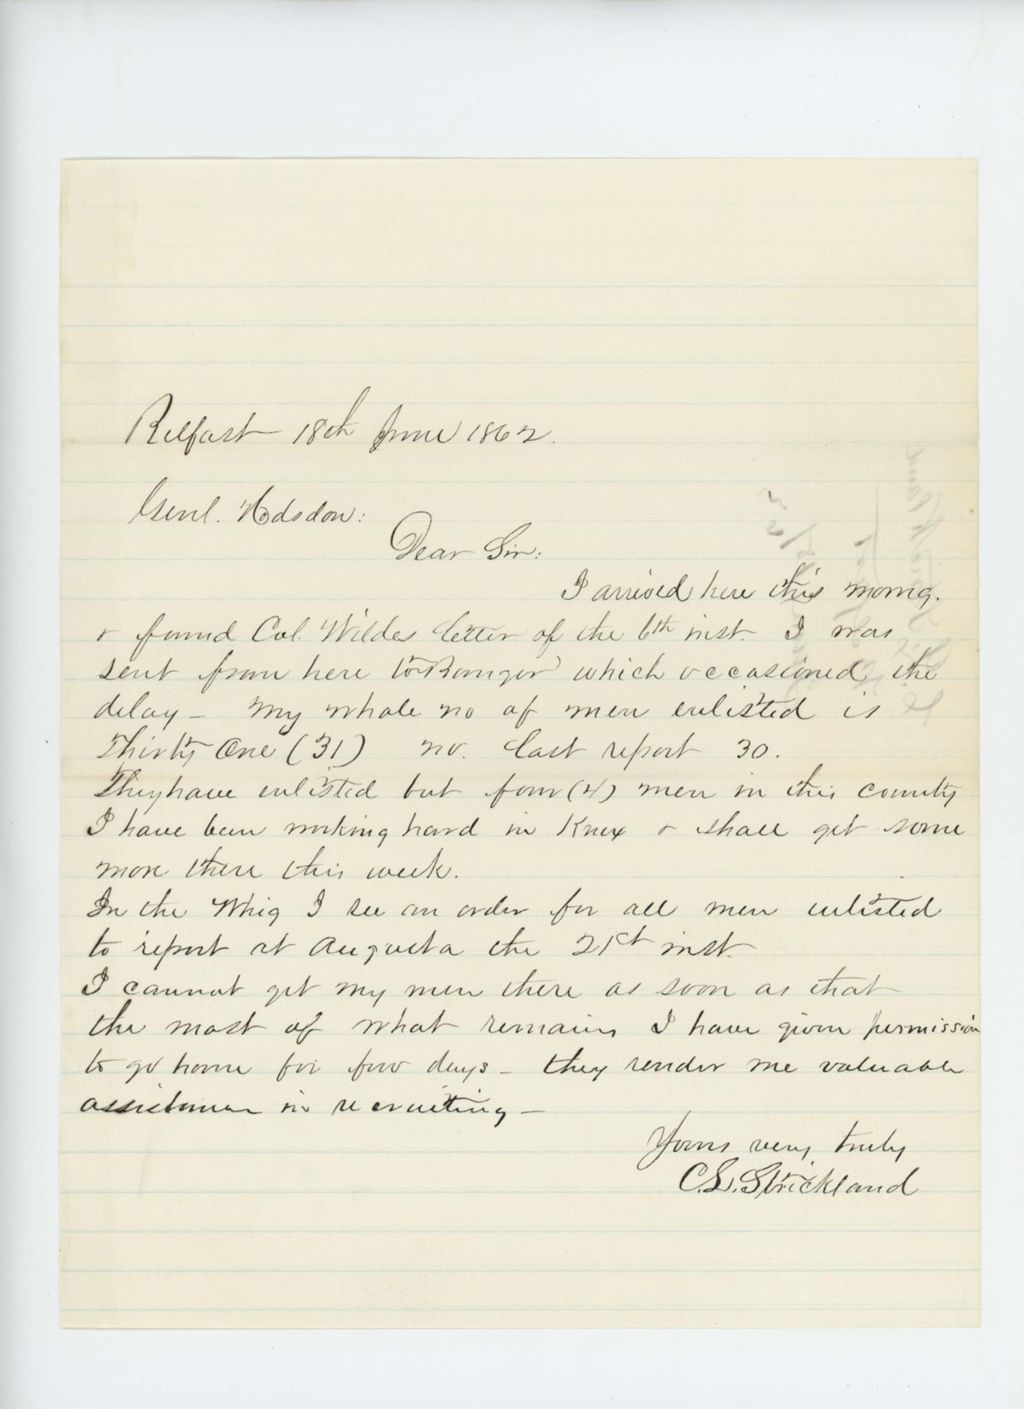 Belfast 18th June 1862.
Genl. Hodsdon:
Dear Sir:
I arrived here this morng.
& found Col. Wildes letter of the 6th inst. I was
sent from here to Bangor which occasioned the
delay – My whole no of men enlisted is
Thirty One (31) no. last report 30.
They have enlisted but four (4) men in this county
I have been working hard in Knox & shall get some
more there this week.
In the Whig I see an order for all men enlisted
to report at Augusta the 21st inst.
I cannot get my men there as soon as that
the most of what remains I have given permission
to go home for few days – they render me valuable
assistance in recruiting –
Yours very truly
C.L. Strickland